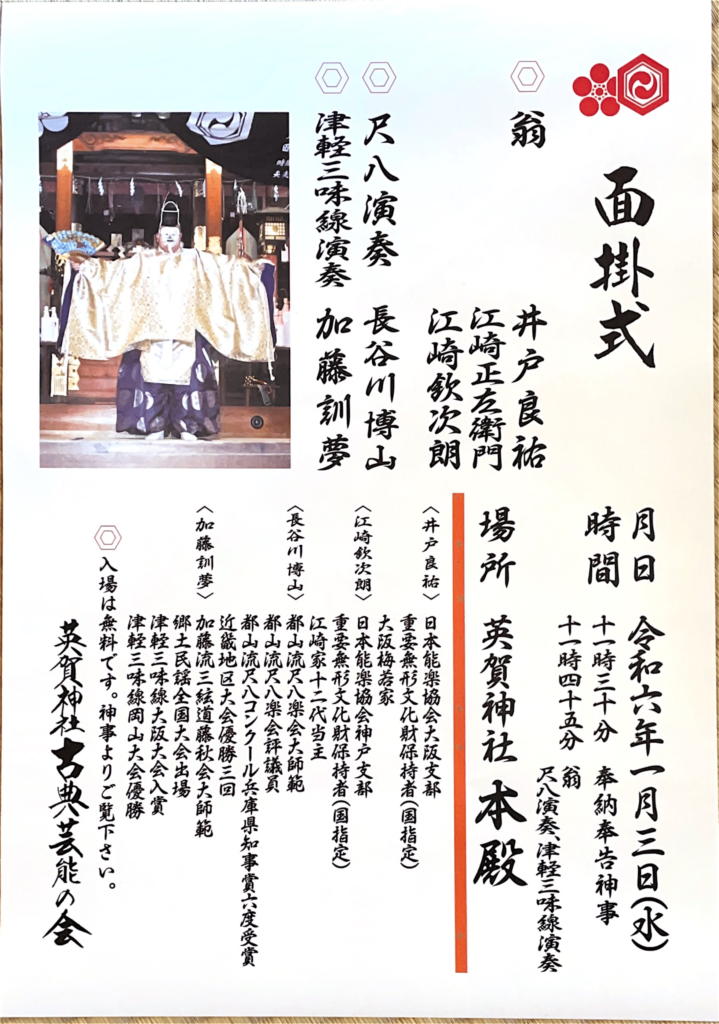 面掛式
翁
井戸良祐
江崎正左衛門
江崎欽次朗
尺八演奏
長谷川博山
津軽三味線演奏
加藤訓夢
月日 令和六年一月三日(水)
時間 十一時三十分 奉納奉告神事
十一時四十五分 翁
尺八演奏、津軽三味線演奏
場所 英賀神社 本殿
〈井戸良祐〉 日本能楽協会大阪支部
重要無形文化財保持者(国指定)
大阪梅若家
〈江崎欽次朗〉 日本能楽協会神戸支部
重要無形文化財保持者(国指定)
江崎家十二代当主
〈長谷川博山〉 都山流尺八楽会大師範
都山流尺八楽会評議員
都山流尺八コンクール兵庫県知事賞六度受賞
近畿地区大会優勝三回
〈加藤訓夢〉 加藤流三絃道藤秋会大師範
郷土民謡全国大会出場
津軽三味線大阪大会入賞
津軽三味線岡山大会優勝
入場は無料です。神事よりご覧下さい。
英賀神社 古典芸能の会